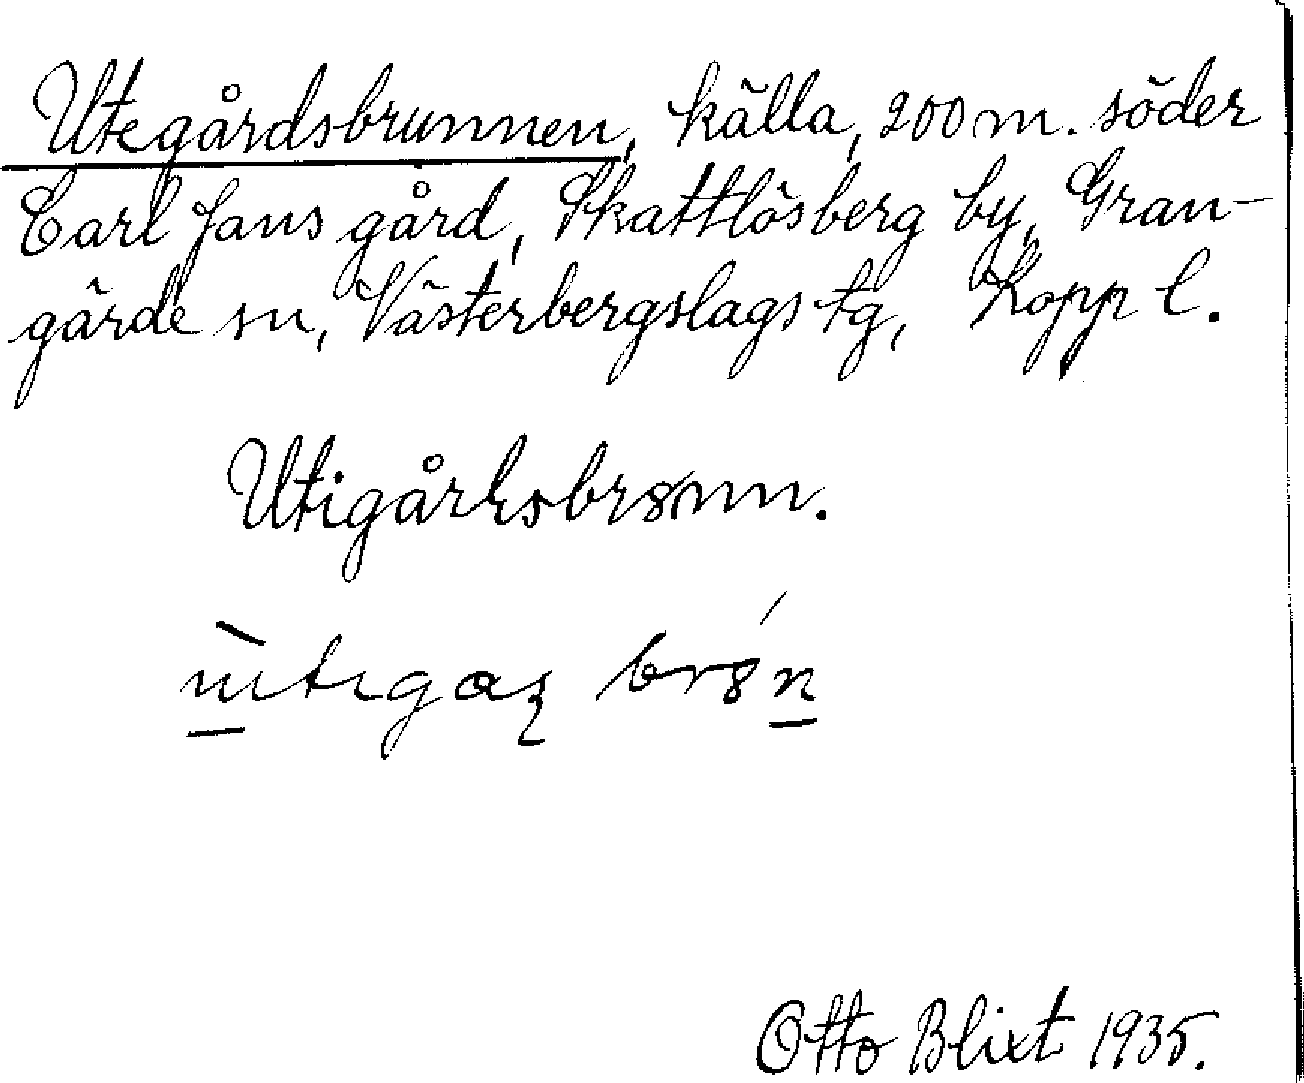 Utegårdsbrunnen, källa, 200 m. söder
Carl Jans gård, Skattlösberg by, Gran-
gärde sn, Västerbergslags tg, Kopp l.
Utigårksbrsnn.
Otto Blixt 1935.